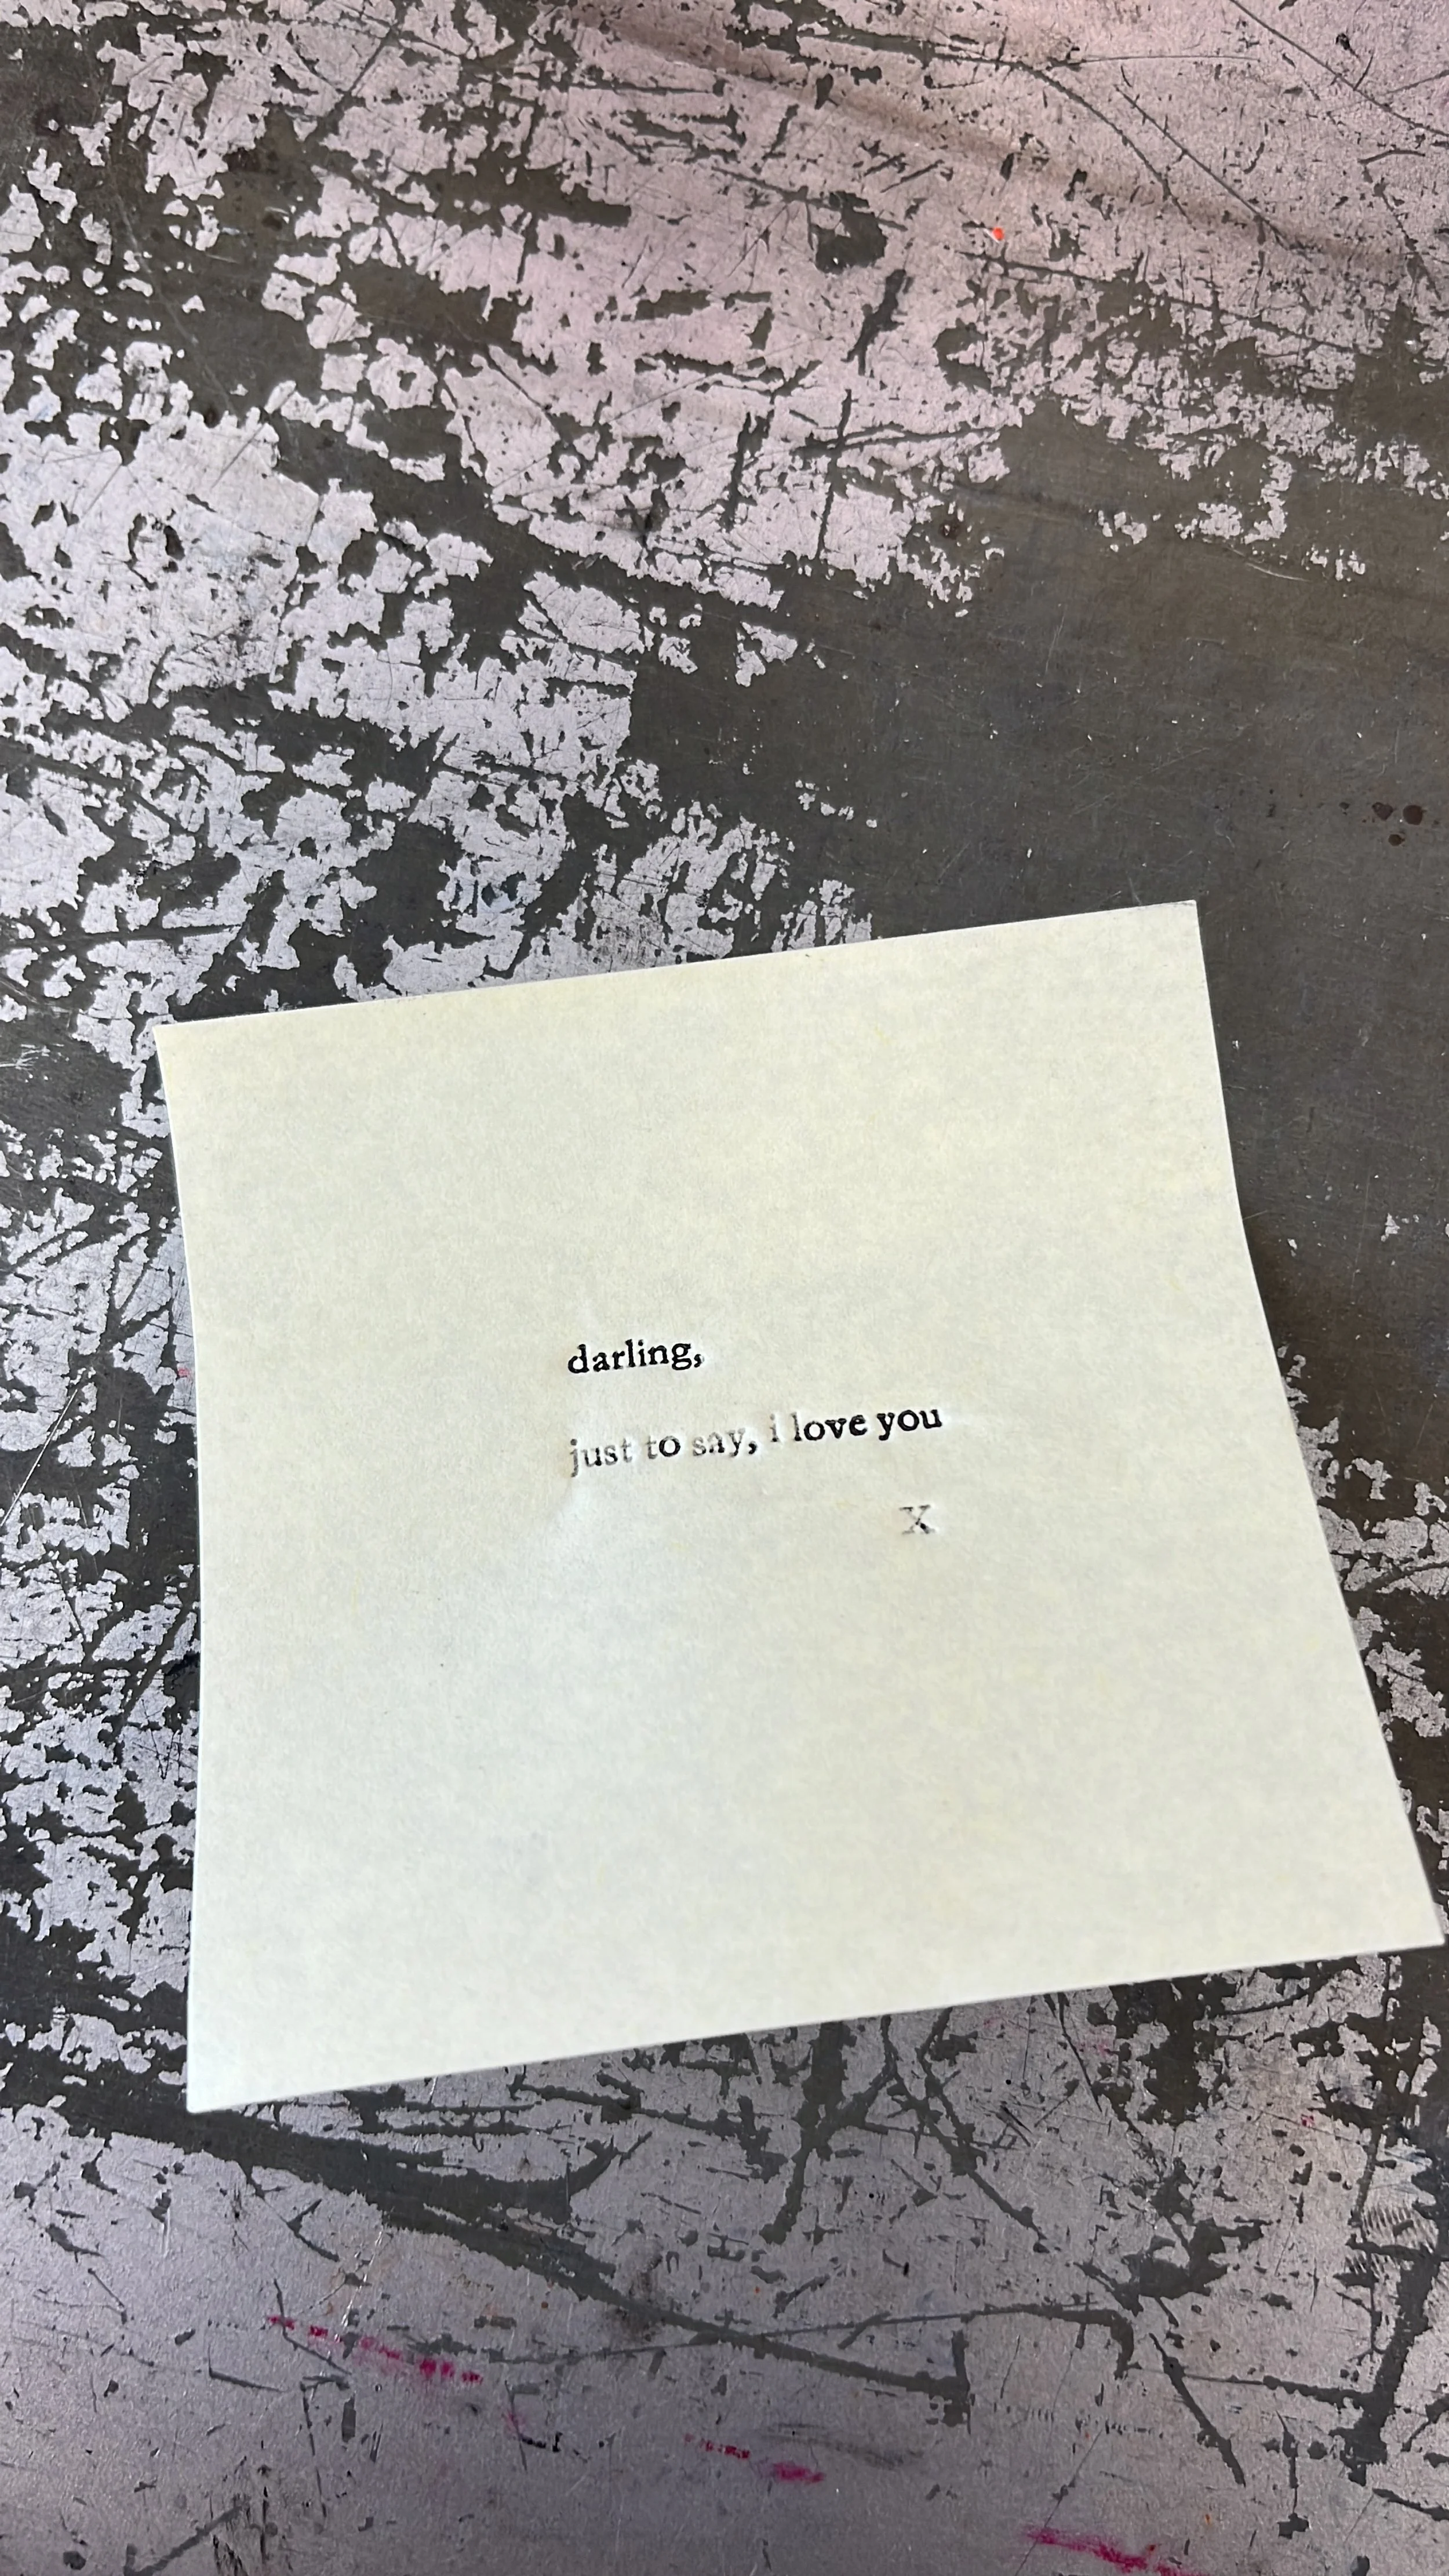 darling,
just to say, i love you
x